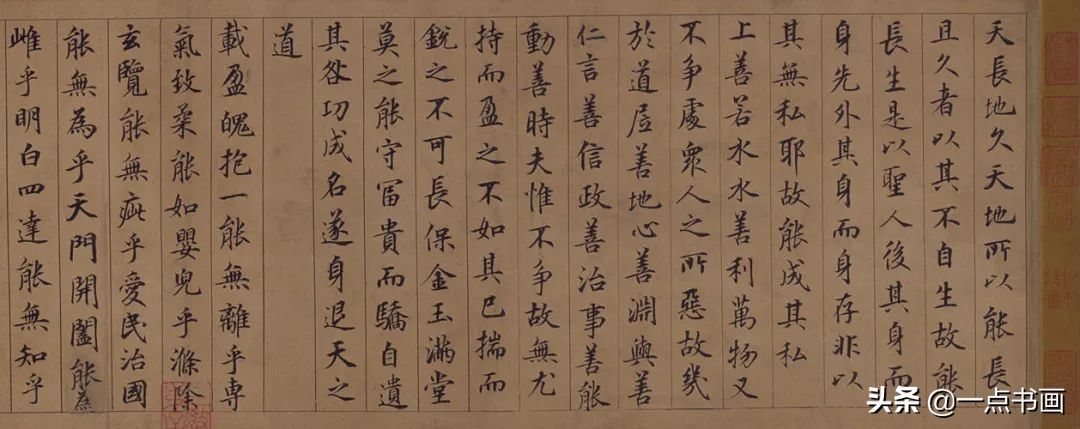 天長地久天地所以能長
且久者以其不自生故能
長生是以聖人後其身而
身先外其身而身存非以
其無私耶故能成其私
上善若水水善利萬物又
不爭處眾人之所惡故幾
於道居善地心善淵與善
仁言善信政善治事善能
動善時夫惟不爭故無尤
持而盈之不如其已揣而
銳之不可長保金玉滿堂
莫之能守富貴而驕自遺
其咎功成名遂身退天之
道
載盈魄抱一能無離乎専
氣致柔能如嬰兒乎滌除
玄覽能無疵乎愛民治國
能無為乎天門開闔能為
雌乎明白四達能無知乎
头条 @一点书画